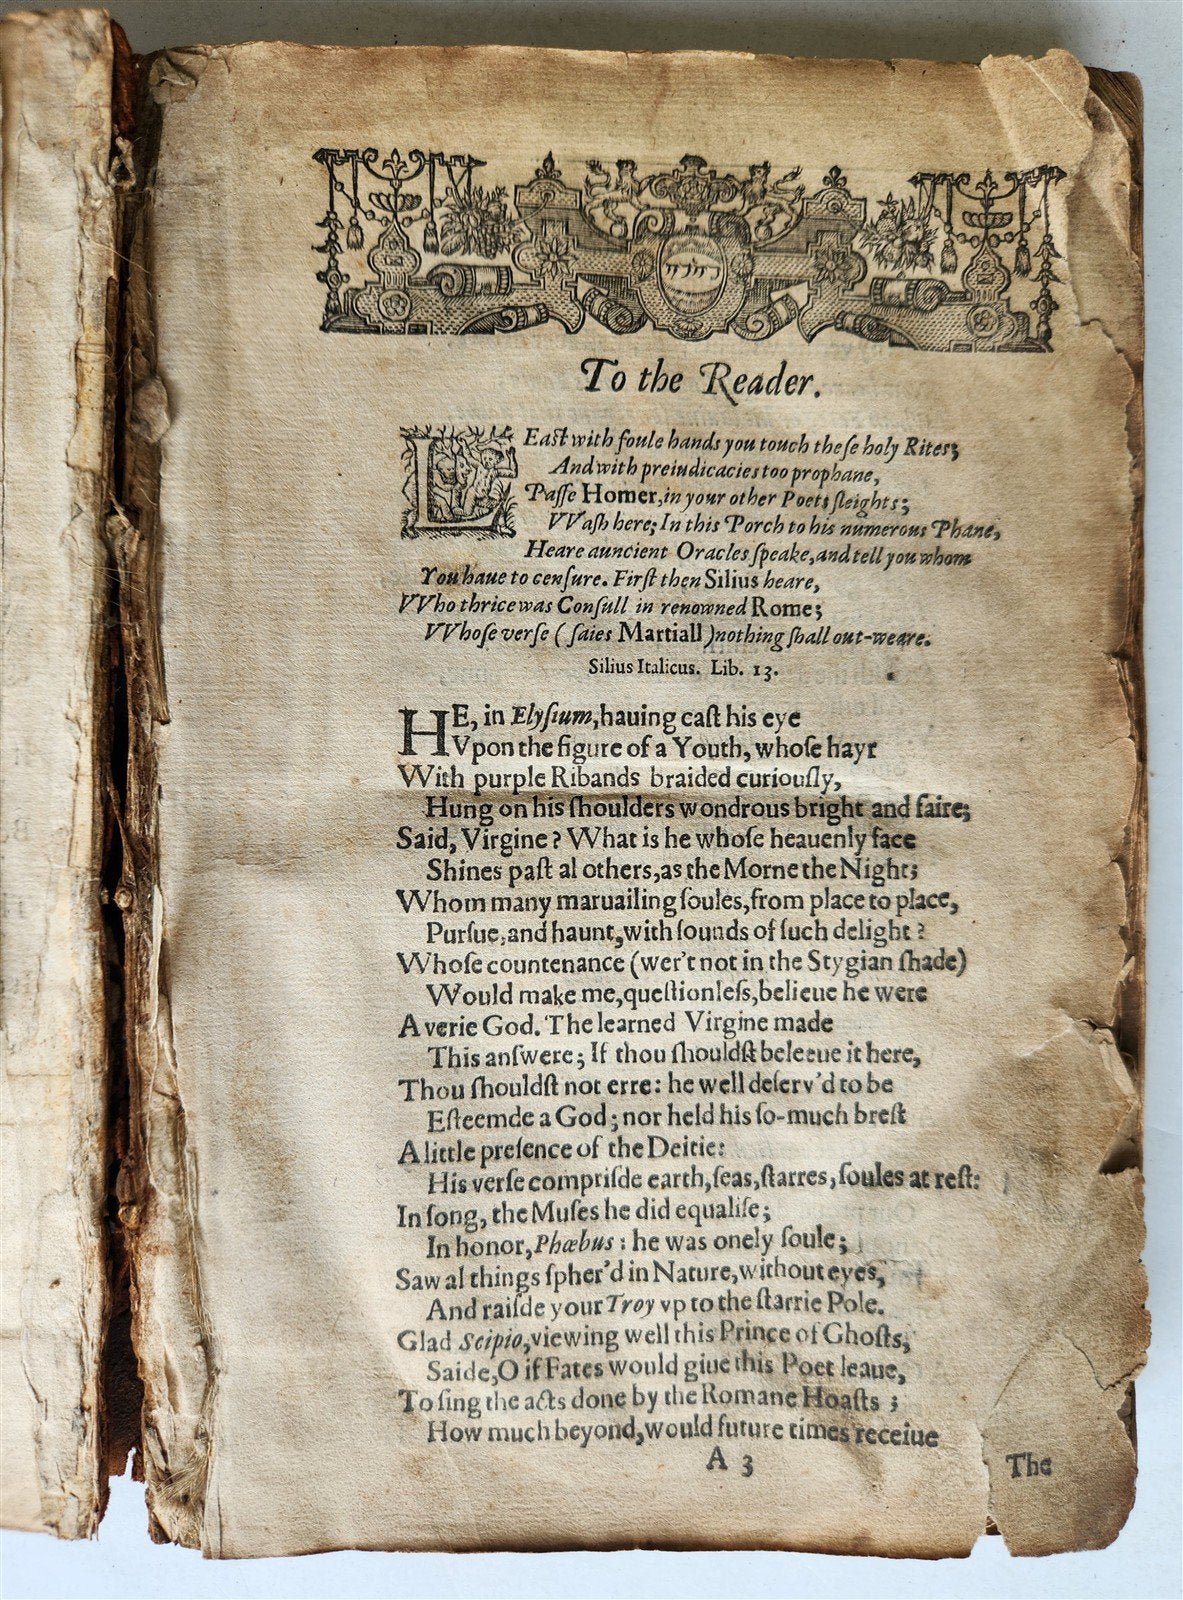 יהוה
To the Reader.
LEaſt with foule hands you touch theſe holy Rites;
And with preiudicacies too prophane,
Paſſe Homer, in your other Poets ſleights;
VVaſh here; In this Porch to his numerous Phane,
Heare auncient Oracles ſpeake, and tell you whom
You haue to cenſure. Firſt then Silius heare,
VVho thrice was Conſull in renowned Rome;
VVhoſe verſe (ſaies Martiall) nothing ſhall out-weare.
Silius Italicus. Lib. 13.
HE, in Elyſium, hauing caſt his eye
Vpon the figure of a Youth, whoſe hayr
With purple Ribands braided curiouſly,
Hung on his ſhoulders wondrous bright and faire;
Said, Virgine? What is he whoſe heauenly face
Shines paſt al others, as the Morne the Night;
Whom many maruailing ſoules, from place to place,
Purſue, and haunt, with ſounds of ſuch delight?
Whoſe countenance (wer't not in the Stygian ſhade)
Would make me, queſtionleſs, belieue he were
A verie God. The learned Virgine made
This anſwere; If thou ſhouldſt beleeue it here,
Thou ſhouldſt not erre: he well deſerv'd to be
Eſteemde a God; nor held his ſo-much breſt
A little preſence of the Deitie:
His verſe compriſde earth, ſeas, ſtarres, ſoules at reſt:
In ſong, the Muſes he did equaliſe;
In honor, Phœbus: he was onely ſoule;
Saw al things ſpher'd in Nature, without eyes,
And raiſde your Troy vp to the ſtarrie Pole.
Glad Scipio, viewing well this Prince of Ghoſts,
Saide, O if Fates would giue this Poet leaue,
To ſing the acts done by the Romane Hoaſts;
How much beyond, would future times receiue
A 3
The